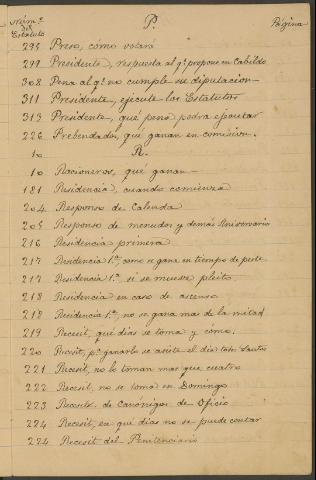 Núm.º del Estatuto
P.
Página
295 Preso, cómo votará
299 Presidente, respuesta al q.e propone en Cabildo
308 Pena al q.e no cumple su diputacion
311 Presidente, ejecute los Estatutos
313 Presidente, qué pena podrá ejecutar
226 Prebendados, qué ganan en comision.
10
R.
10 Racioneros, qué ganan
181 Residencia, cuando comienza
204 Responso de Calenda
205 Responso de menudos y demás Aniversario
216 Residencia primera
217 Residencia 1.ª, como se gana en tiempo de peste
217 Residencia 1.ª si se mueve pleito
218 Residencia en caso de ascenso
218 Residencia 1.ª, no se gana mas de la mitad
219 Recesit, qué dias se toma y cómo.
220 Recesit, p.a ganarlo se asista el dia todos Santos
221 Recesit, no lo toman mas que cuatro
222 Recesit, no se toma en Domingo
223 Recesit de Canónigos de Oficio
224 Recesit, en qué dias no se puede contar
224 Recesit del Penitenciario